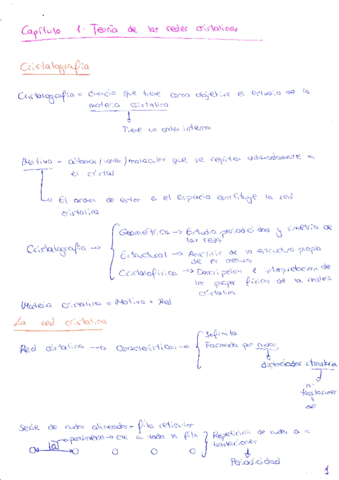 Capítulo 1: Teoría de las redes cristalinas
Cristalografía
Cristalografía = Ciencia que tiene como objetivo el estudio de la
materia cristalina
Tiene un orden interno
Motivo = átomos/iones/moléculas que se repiten ordenadamente en
el cristal
El orden de estos en el Espacio constituye la red
cristalina
Cristalografía →
Geométrica → Estudia periodicidad y simetría de
las redes
Estructural → Análisis de la estructura propia
de el motivo
Cristalofísica → Descripción e interpretación de
las prop. físicas de la mater.
cristalina
Materia cristalina = Motivo + Red
La red cristalina
Red cristalina → Características →
Infinita
Formada por nudos
distanciados
traslaciones
Serie de nudos alineados = fila reticular
parámetro → cte a toda la fila
Repetición de nudos a =
traslaciones
Periodicidad
1